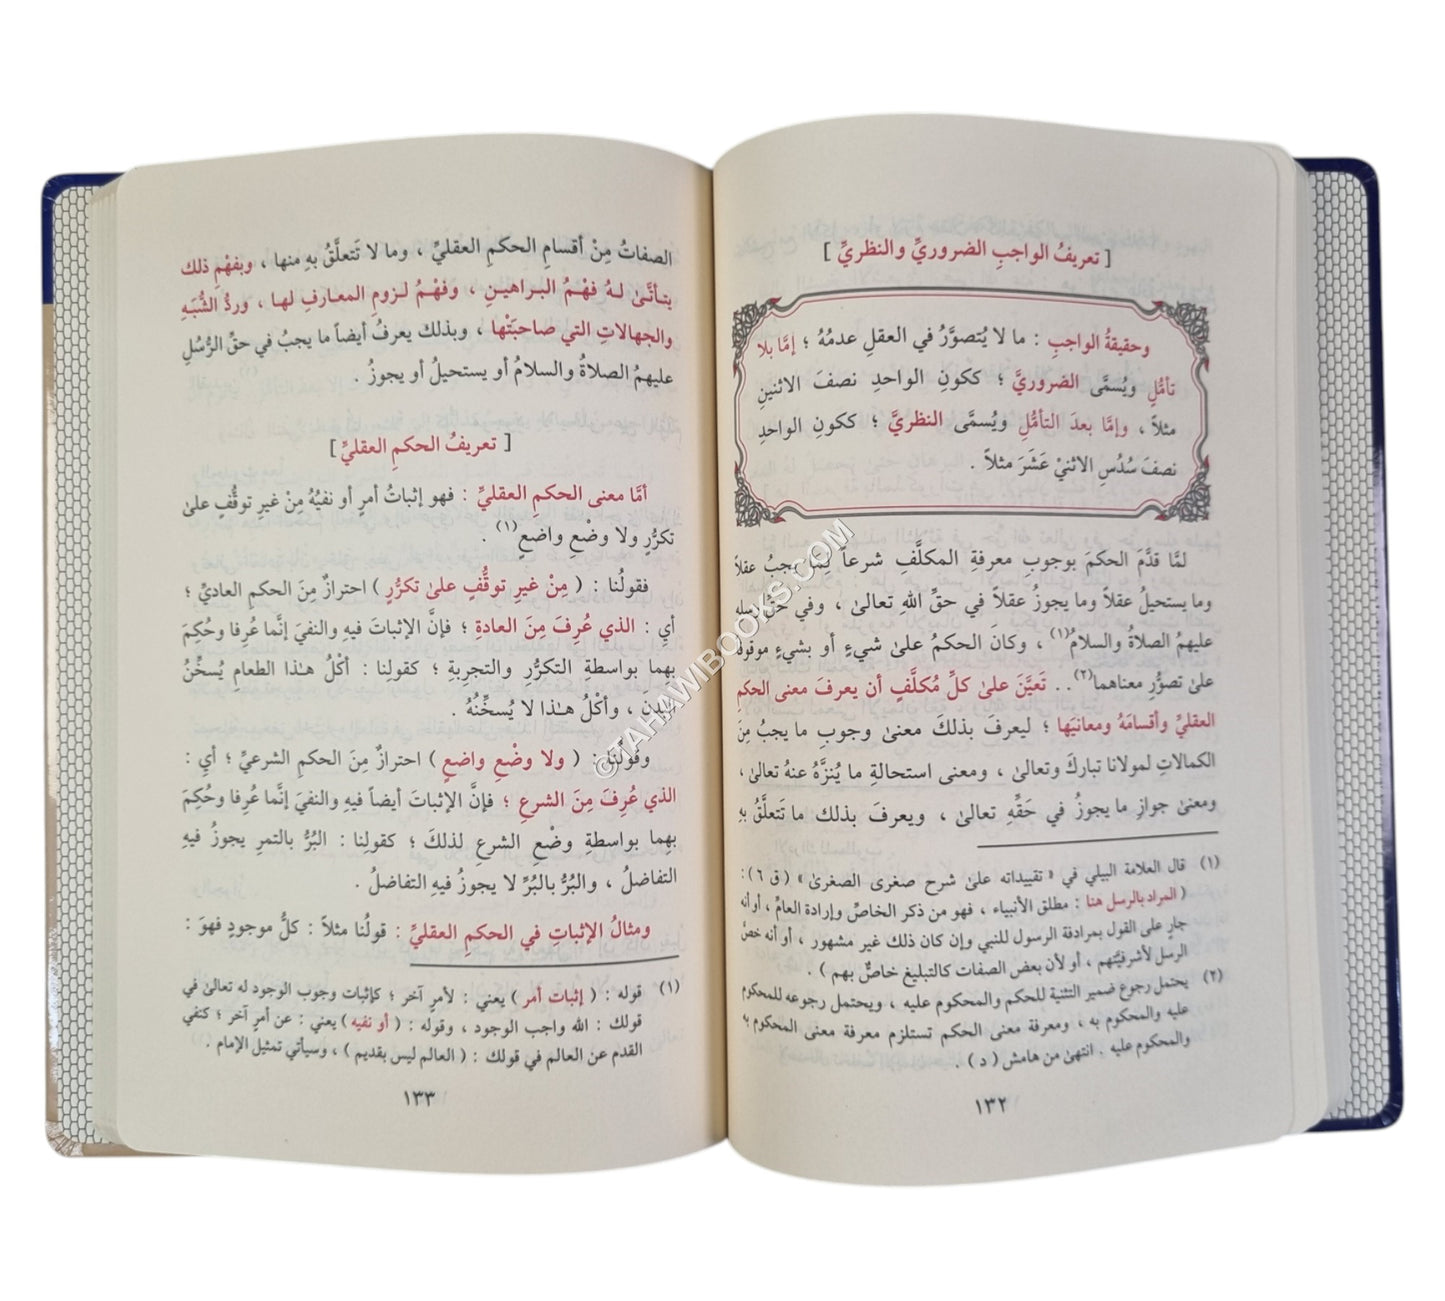 [ تعريفُ الواجبِ الضروريِّ والنظريِّ ]
وحقيقةُ الواجبِ : ما لا يُتصوَّرُ في العقلِ عدمُهُ ؛ إمَّا بلا
تأمُّلٍ ويُسمَّى الضروريَّ ؛ ككونِ الواحدِ نصفَ الاثنينِ
مثلاً ، وإمَّا بعدَ التأمُّلِ ويُسمَّى النظريَّ ؛ ككونِ الواحدِ
نصفَ سُدُسِ الاثنيْ عَشَرَ مثلاً .
لمَّا قدَّمَ الحكمَ بوجوبِ معرفةِ المكلَّفِ شرعاً لِمَا يجبُ عقلاً
وما يستحيلُ عقلاً وما يجوزُ عقلاً في حقِّ اللهِ تعالىٰ ، وفي حقِّ رسلِهِ
عليهمُ الصلاةُ والسلامُ(١) ، وكانَ الحكمُ علىٰ شيءٍ أو بشيءٍ موقوفاً
علىٰ تصوُّرِ معناهما(٢).. تعيَّنَ علىٰ كلِّ مُكلَّفٍ أن يعرفَ معنى الحكمِ
العقليِّ وأقسامَهُ ومعانيَها ؛ ليعرفَ بذلكَ معنىٰ وجوبِ ما يجبُ مِنَ
الكمالاتِ لمولانا تباركَ وتعالىٰ ، ومعنى استحالةِ ما يُنزَّهُ عنهُ تعالىٰ ،
ومعنىٰ جوازِ ما يجوزُ في حَقِّهِ تعالىٰ ، ويعرفَ بذلك ما تتعلَّقُ بهِ
(١) قال العلامة البيلي في « تقييداته علىٰ شرح صغرى الصغرىٰ » ( ق ٦ ) :
( المراد بالرسل هنا : مطلق الأنبياء ، فهو من ذكر الخاصِّ وإرادة العامِّ ، أو أنه
جارٍ على القول بمرادفة الرسول للنبي وإن كان ذلك غير مشهور ، أو أنه خصَّ
الرسل لأشرفيَّتهم ، أو لأن بعض الصفات كالتبليغ خاصٌّ بهم ) .
(٢) يحتمل رجوع ضمير التثنية للحكم والمحكوم عليه ، ويحتمل رجوعه للمحكوم
عليه والمحكوم به ، ومعرفة معنى الحكم تستلزم معرفة معنى المحكوم به
والمحكوم عليه . انتهىٰ من هامش ( د ) .
١٣٢
الصفاتُ مِنْ أقسامِ الحكمِ العقليِّ ، وما لا تَتعلَّقُ بهِ منها ، وبفهمِ ذلك
يتأتَّىٰ لهُ فهْمُ البراهينِ ، وفهْمُ لزومِ المعارفِ لها ، وردُّ الشُّبَهِ
والجهالاتِ التي صاحبَتْها ، وبذلك يعرفُ أيضاً ما يجبُ في حقِّ الرُّسُلِ
عليهمُ الصلاةُ والسلامُ أو يستحيلُ أو يجوزُ .
[ تعريفُ الحكمِ العقليِّ ]
أمَّا معنى الحكمِ العقليِّ : فهو إثباتُ أمرٍ أو نفيُهُ مِنْ غيرِ توقُّفٍ علىٰ
تكرُّرٍ ولا وضْعِ واضعٍ(١) .
فقولُنا : ( مِنْ غيرِ توقُّفٍ علىٰ تكرُّرٍ ) احترازٌ مِنَ الحكمِ العاديِّ ؛
أي : الذي عُرِفَ مِنَ العادةِ ؛ فإنَّ الإثباتَ فيهِ والنفيَ إنَّما عُرِفا وحُكِمَ
بهِما بواسطةِ التكرُّرِ والتجرِبةِ ؛ كقولنا : أكْلُ هـٰذا الطعامِ يُسخِّنُ
البدنَ ، وأكْلُ هـٰذا لا يُسخِّنُهُ .
وقولُنا : ( ولا وضْعِ واضعٍ ) احترازٌ مِنَ الحكمِ الشرعيِّ ؛ أي :
الذي عُرِفَ مِنَ الشرعِ ؛ فإنَّ الإثباتَ أيضاً فيهِ والنفيَ إنَّما عُرِفا وحُكِمَ
بهِما بواسطةِ وضْعِ الشرعِ لذلكَ ؛ كقولِنا : البُرُّ بالتمرِ يجوزُ فيهِ
التفاضلُ ، والبُرُّ بالبُرِّ لا يجوزُ فيهِ التفاضلُ .
ومثالُ الإثباتِ في الحكمِ العقليِّ : قولُنا مثلاً : كلُّ موجودٍ فهوَ :
(١) قوله : ( إثبات أمر ) يعني : لأمرٍ آخر ؛ كإثبات وجوب الوجود له تعالىٰ في
قولك : الله واجب الوجود ، وقوله : ( أو نفيه ) يعني : عن أمرٍ آخر ؛ كنفي
القدم عن العالم في قولك : ( العالم ليس بقديم ) ، وسيأتي تمثيل الإمام .
١٣٣
©TAHAWIBOOKS.COM